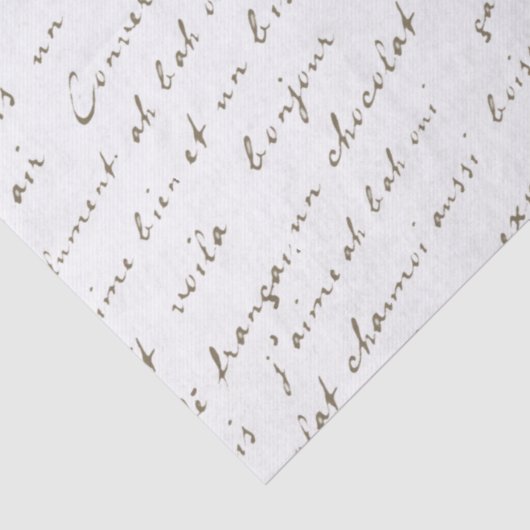 un
air Conver
ument. ah bah o
ime bien et un bis
t voila bonjour
é français, un chocolat
is j'aime ah bah oui sa
lat chaimoi aussi, bois
ex